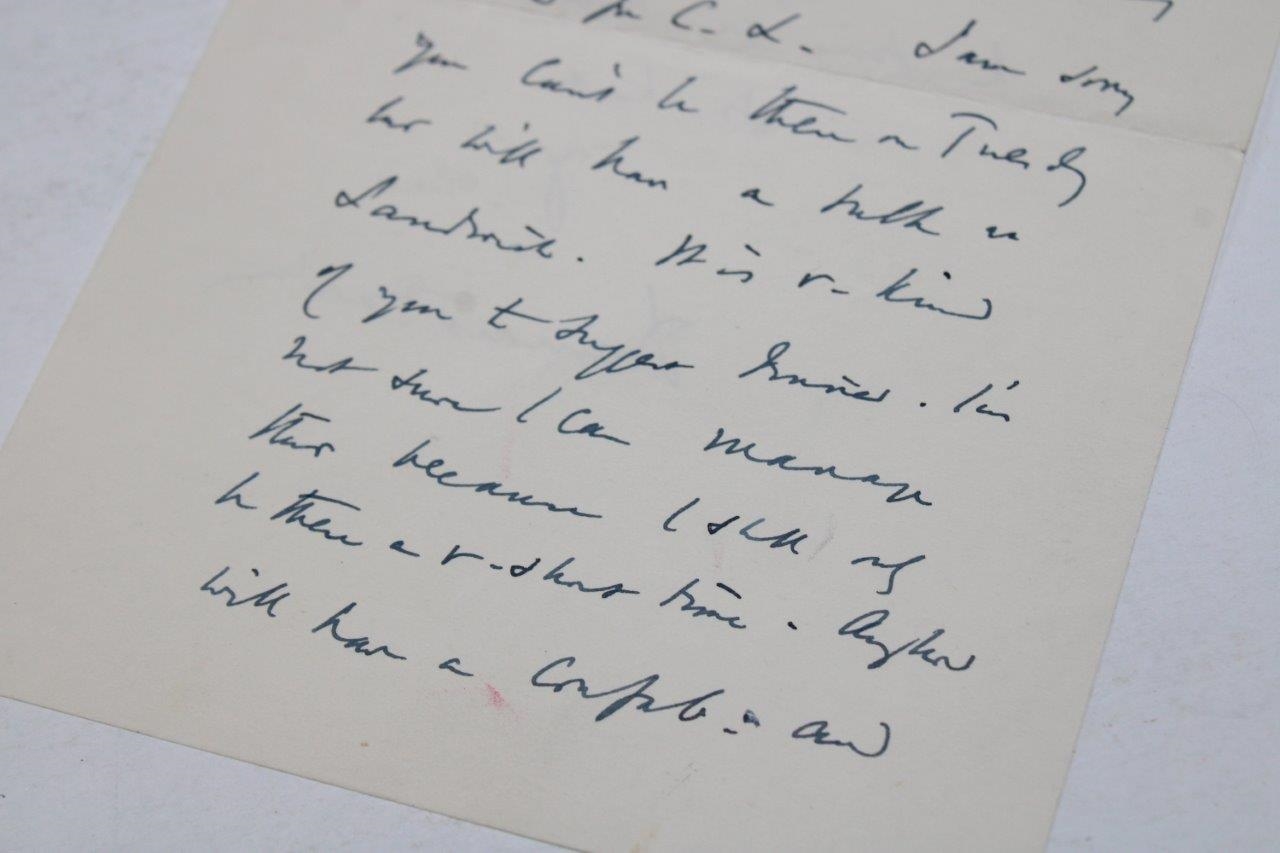 for C. L. I am sorry
you can't be there on Tuesday
but will have a talk at
Sandwich. It is v. kind
of you to suggest dinner. I'm
not sure I can manage
that because I shall only
be there a v. short time. Anyhow
will have a confab: and